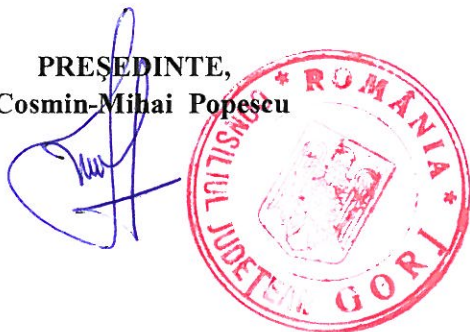 PREŞEDINTE,
Cosmin-Mihai Popescu
* ROMÂNIA *
CONSILIUL JUDEŢEAN
GORJ